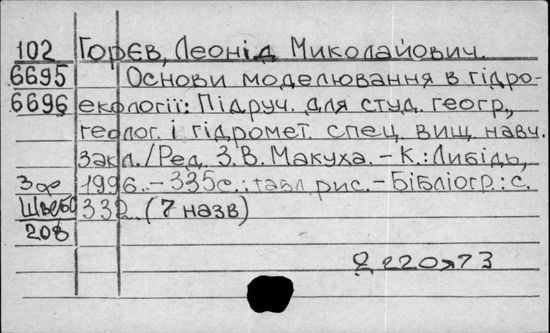 102 Горєв, Леонід Миколайович.
6695 Основи моделювання в гідро-
6696 екології: Підруч. для студ. геогр.,
геолог. і гідромет. спец. вищ. навч.
закл./Ред. З.В. Макуха. – К.: Либідь,
1996. – 335с.: табл. рис. – Бібліогр.: с.
332 (7 назв)
208